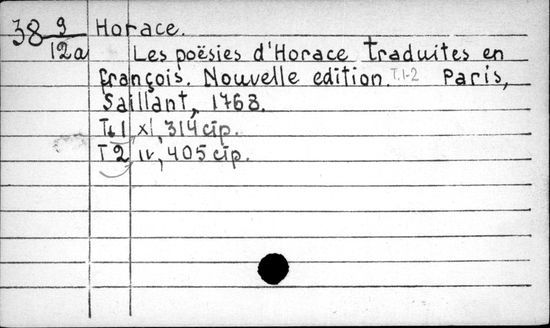 38 9/12a Horace.
Les poësies d'Horace traduites en
françois. Nouvelle edition. T.1-2 Paris,
Saillant, 1768.
T. 1 XI, 314 стр.
T 2 IV, 405 стр.